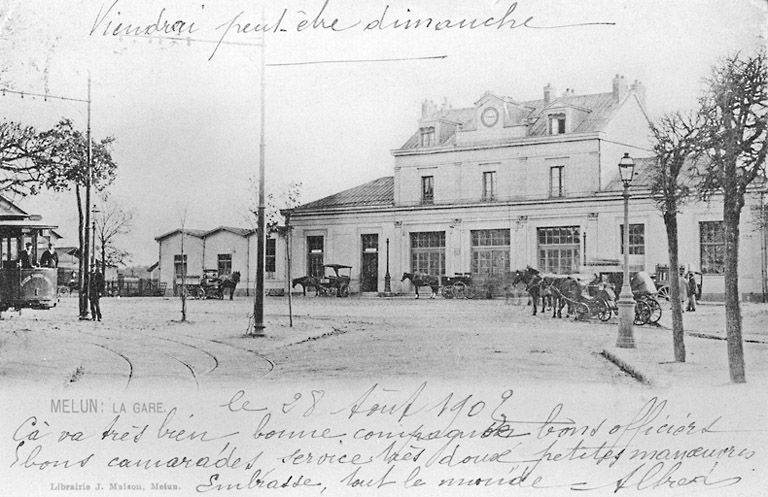 Viendrai peut-être dimanche
MELUN: LA GARE.
le 28 Août 190
Cà va très bien bonne compagnie bons officiers
& bons camarades service très doux petites manœuvres
Embrasse, tout le monde = Alfred
Librairie J. Maison, Melun.